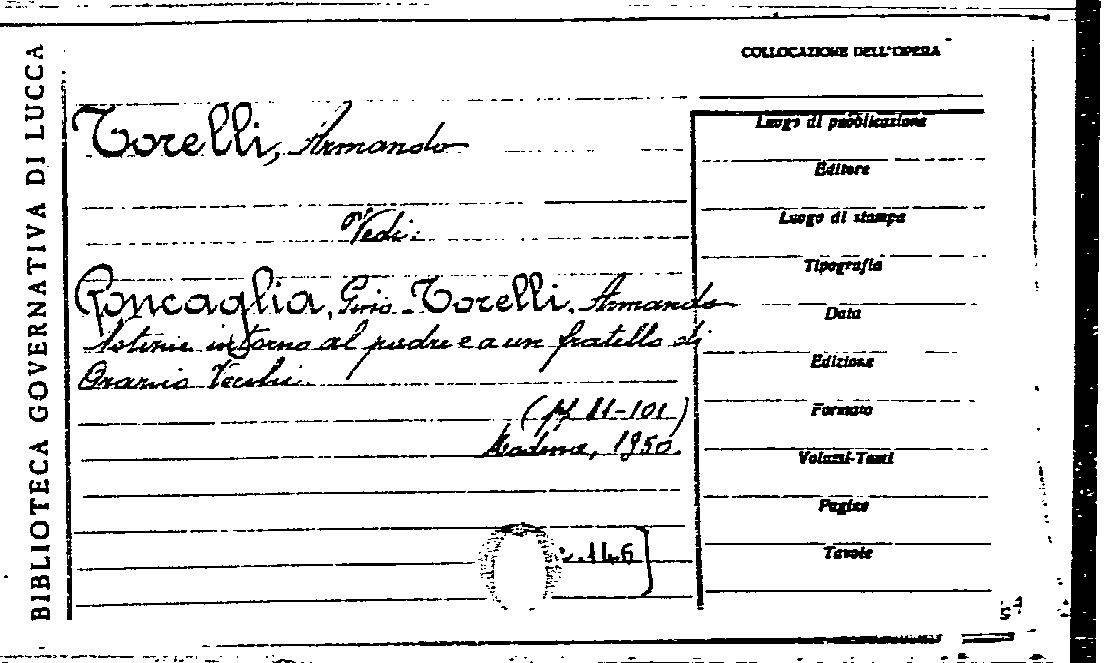 BIBLIOTECA GOVERNATIVA DI LUCCA
COLLOCAZIONE DELL'OPERA
Torelli, Armando
Vedi:
Roncaglia, Gino - Torelli, Armando
Notizie intorno al padre e a un fratello di
Orazio Vecchi
(pp 81-101)
Modena, 1950.
146
Luogo di pubblicazione
Editore
Luogo di stampa
Tipografia
Data
Edizione
Formato
Volumi-Tomi
Pagine
Tavole